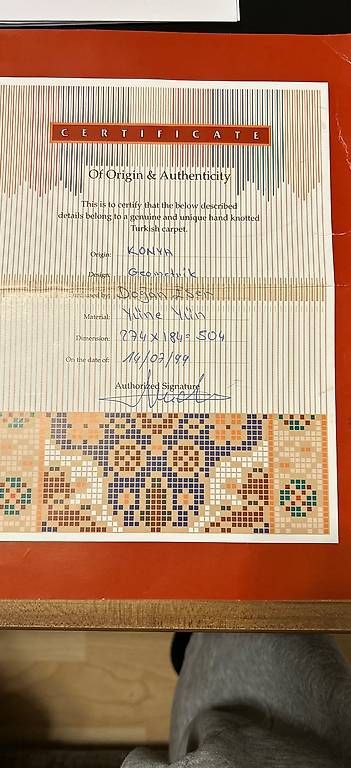 CERTIFICATE
Of Origin & Authenticity
This is to certify that the below described
details belong to a genuine and unique hand knotted
Turkish carpet.
Origin: KONYA
Design: Geometrik
by: Dogan
Material: Yüne Yün
Dimension: 274 x 184 = 504
On the date of: 14/07/99
Authorized Signature